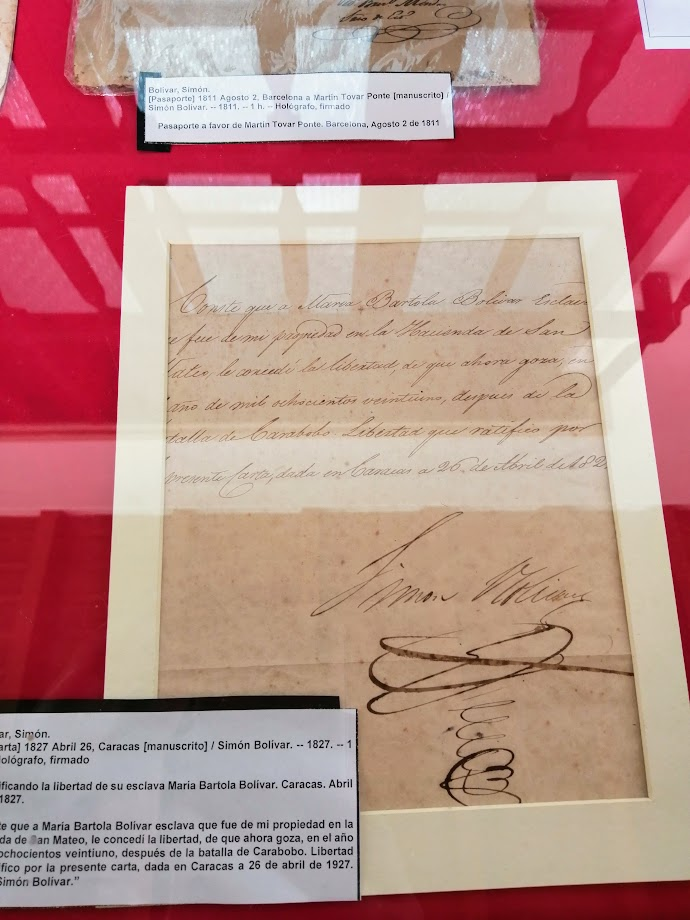 Bolívar, Simón.
[Pasaporte] 1811 Agosto 2, Barcelona a Martín Tovar Ponte [manuscrito] /
Simón Bolívar. -- 1811. -- 1 h. – Hológrafo, firmado
Pasaporte a favor de Martín Tovar Ponte. Barcelona, Agosto 2 de 1811
Conste que a María Bartola Bolívar Esclav
e fue de mi propiedad en la Hacienda de San
Mateo, le concedí la libertad, de que ahora goza, en
año de mil ochocientos veintiuno, despues de la
talla de Carabobo Libertad que ratifico por
presente Carta, dada en Caracas a 26 de Abril de 182
Simon Bolivar
ar, Simón.
arta] 1827 Abril 26, Caracas [manuscrito] / Simón Bolívar. -- 1827. -- 1
ológrafo, firmado
ificando la libertad de su esclava María Bartola Bolívar. Caracas. Abril
1827.
te que a María Bartola Bolívar esclava que fue de mi propiedad en la
da de San Mateo, le concedí la libertad, de que ahora goza, en el año
ochocientos veintiuno, después de la batalla de Carabobo. Libertad
ifico por la presente carta, dada en Caracas a 26 de abril de 1927.
Simón Bolívar.”